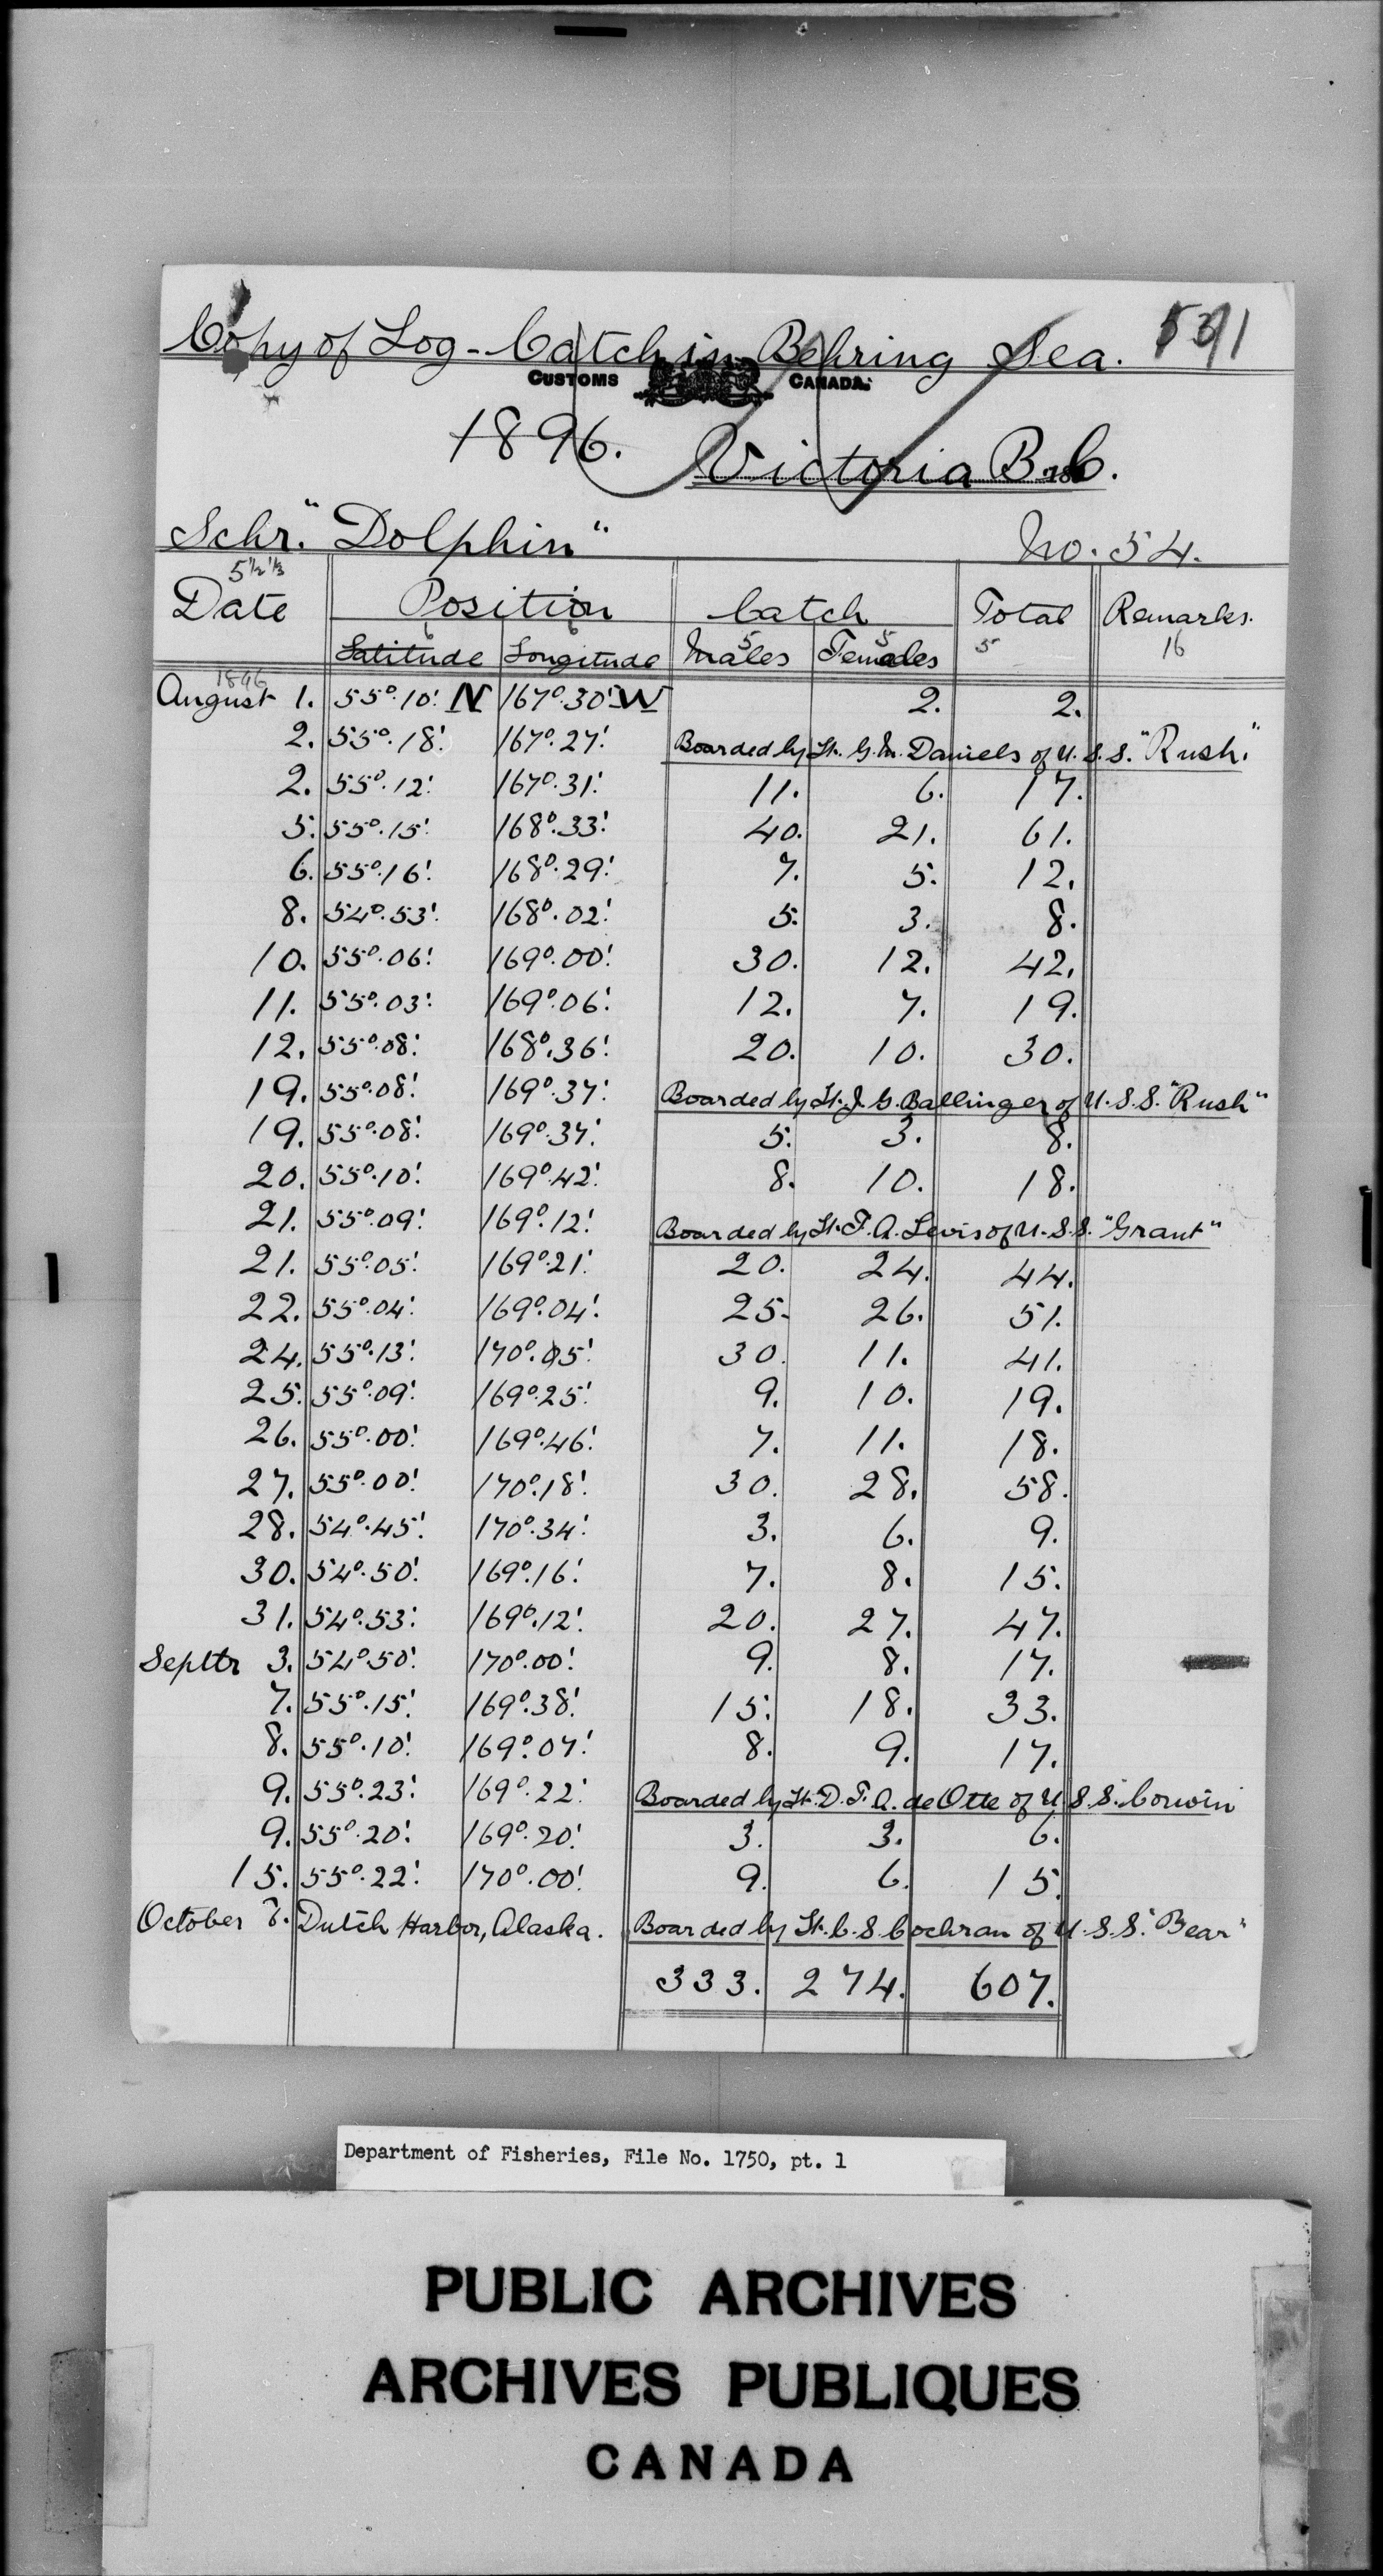 Copy of Log - Catch in Behring Sea. 5391
CUSTOMS CANADA.
1896. Victoria B.C.
Schr. "Dolphin" No. 54.
5 1/2 1/3
Date Position Catch Total Remarks.
6 6 5 5 5 16
Latitude Longitude Males Females
1896
August 1. 55°.10'. N 167°.30'. W 2. 2.
2. 55°.18'. 167°.27'. Boarded by Lt. G. M. Daniels of U.S.S. "Rush."
2. 55°.12'. 167°.31'. 11. 6. 17.
5. 55°.15'. 168°.33'. 40. 21. 61.
6. 55°.16'. 168°.29'. 7. 5. 12.
8. 54°.53'. 168°.02'. 5. 3. 8.
10. 55°.06'. 169°.00'. 30. 12. 42.
11. 55°.03'. 169°.06'. 12. 7. 19.
12. 55°.08'. 168°.36'. 20. 10. 30.
19. 55°.08'. 169°.37'. Boarded by Lt. J. G. Ballinger of U.S.S. "Rush"
19. 55°.08'. 169°.37'. 5. 3. 8.
20. 55°.10'. 169°.42'. 8. 10. 18.
21. 55°.09'. 169°.12'. Boarded by Lt. F. A. Levis of U.S.S. "Grant"
21. 55°.05'. 169°.21'. 20. 24. 44.
22. 55°.04'. 169°.04'. 25. 26. 51.
24. 55°.13'. 170°.05'. 30. 11. 41.
25. 55°.09'. 169°.25'. 9. 10. 19.
26. 55°.00'. 169°.46'. 7. 11. 18.
27. 55°.00'. 170°.18'. 30. 28. 58.
28. 54°.45'. 170°.34'. 3. 6. 9.
30. 54°.50'. 169°.16'. 7. 8. 15.
31. 54°.53'. 169°.12'. 20. 27. 47.
Septtr 3. 54°.50'. 170°.00'. 9. 8. 17.
7. 55°.15'. 169°.38'. 15. 18. 33.
8. 55°.10'. 169°.07'. 8. 9. 17.
9. 55°.23'. 169°.22'. Boarded by Lt. D. F. A. de Otte of U.S.S. Corwin
9. 55°.20'. 169°.20'. 3. 3. 6.
15. 55°.22'. 170°.00'. 9. 6. 15.
October Dutch Harbor, Alaska. Boarded by Lt. C. S. Cochran of U.S.S. "Bear"
333. 274. 607.
Department of Fisheries, File No. 1750, pt. 1
PUBLIC ARCHIVES
ARCHIVES PUBLIQUES
CANADA